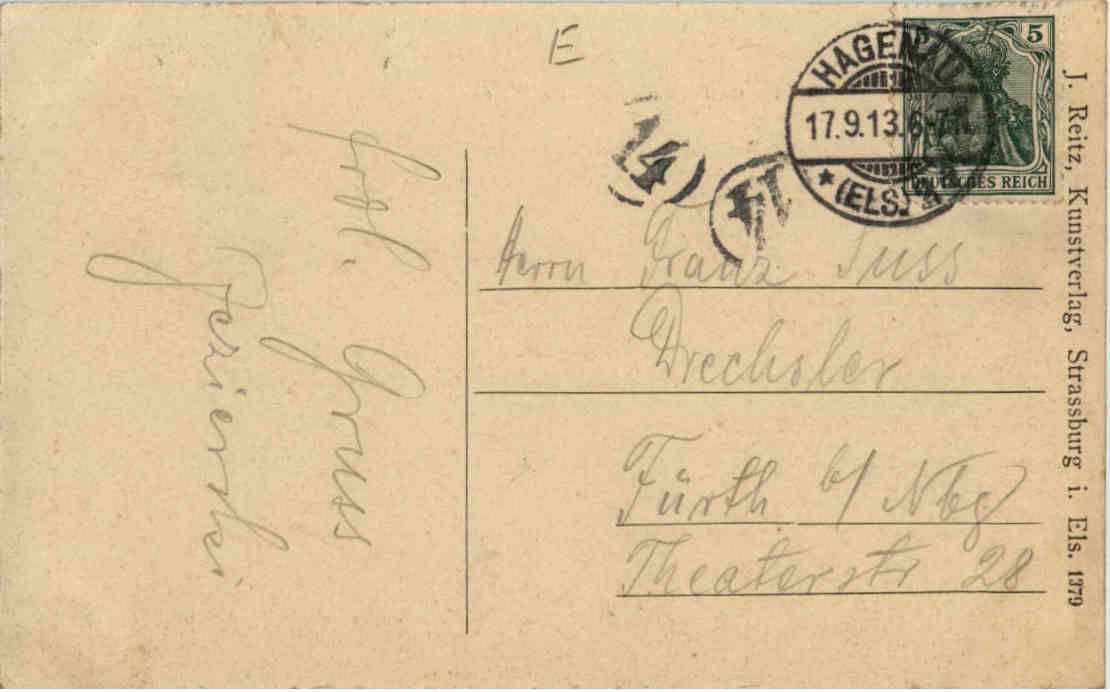 E
HAGENAU
17.9.13.6-7N.
* (ELS.) *
5
DEUTSCHES REICH
14
Frdl. Gruss
Herrn Franz Suss
Drechsler
Fürth b/ Nbg
Theaterstr 28
J. Reitz, Kunstverlag, Strassburg i. Els. 1379